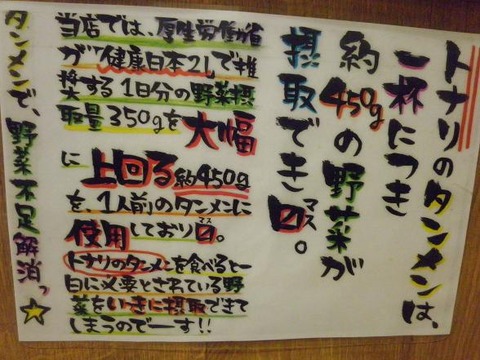 トナリのタンメンは、
一杯につき
約450gの野菜が
摂取でき〼。
マス
当店では、厚生労働省
が「健康日本21」で推
奨する1日分の野菜摂
取量350gを大幅
に上回る約450g
を、1人前のタンメンに
使用しており〼。
マス
トナリのタンメンを食べると一
日に必要とされている野
菜をいっきに摂取できて
しまうのでーす!!
タンメンで、野菜不足解消っ☆